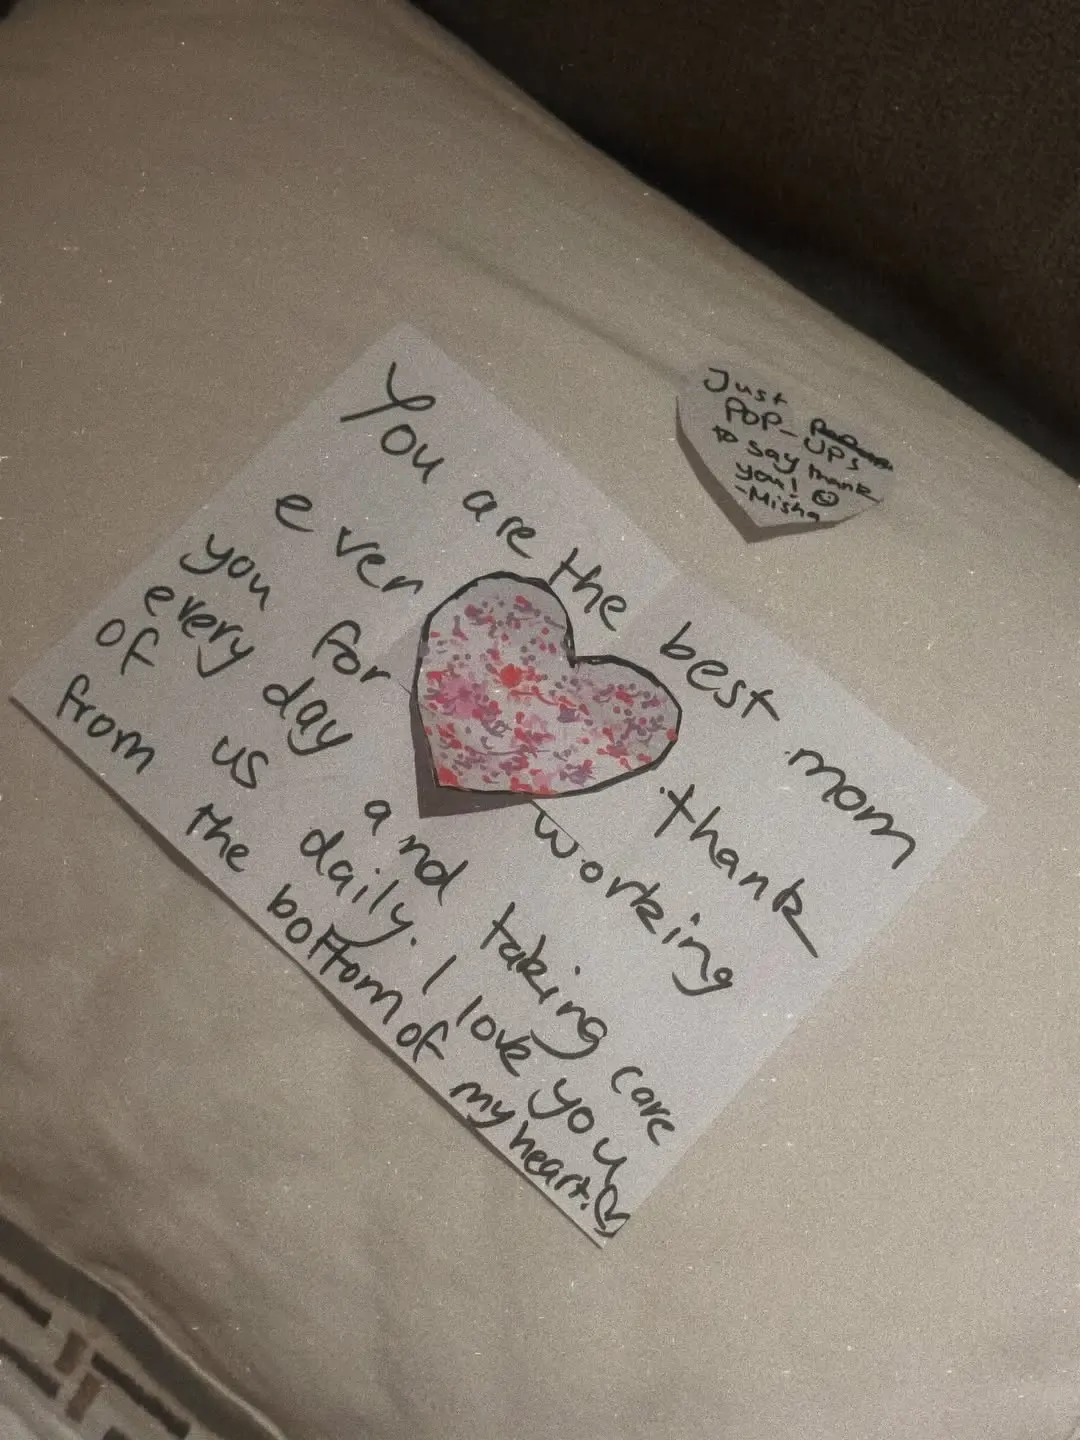 You are the best mom
ever thank
you for working
every day and taking care
of us daily. I love you
from the bottom of my heart.♡
Just
POP-UPs
to say thank
you! ☺
-Misha